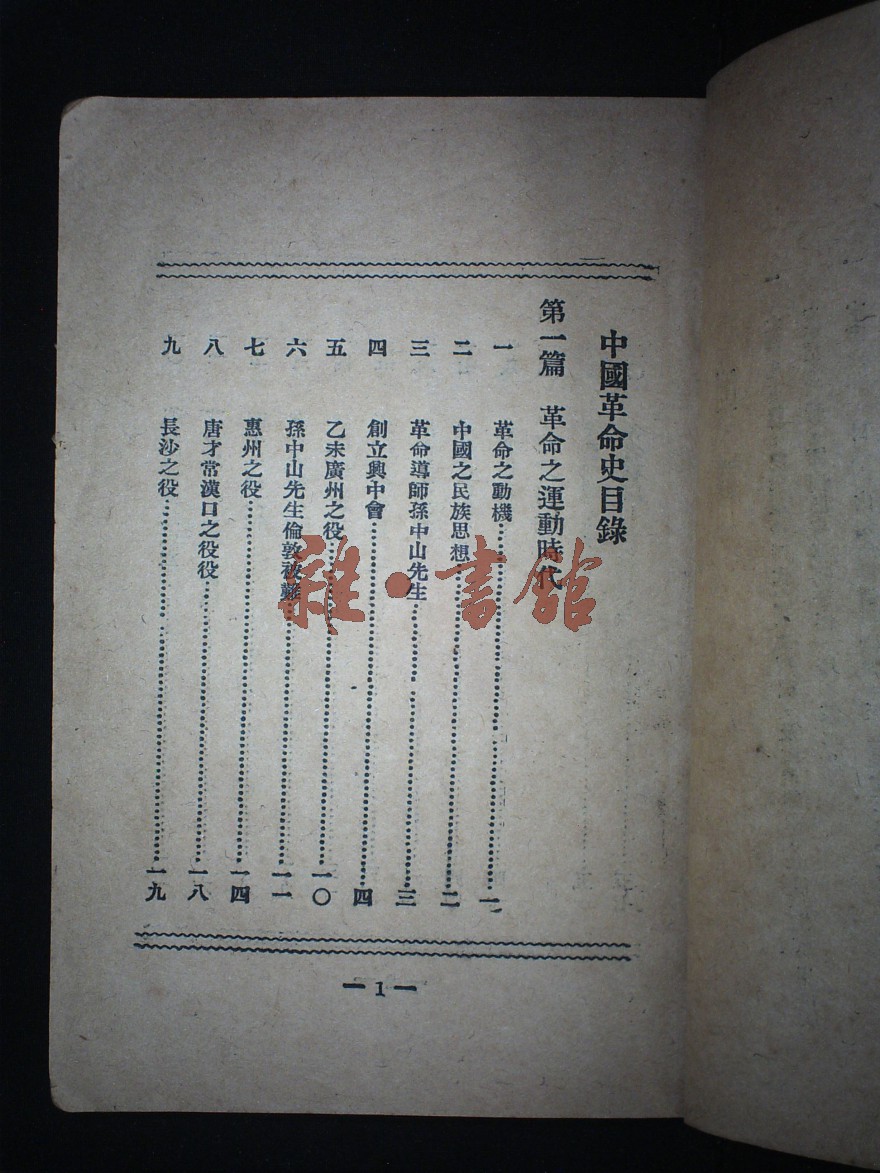 中國革命史目錄
第一篇 革命之運動時代
一 革命之動機 一
二 中國之民族思想 二
三 革命導師孫中山先生 三
四 創立興中會 四
五 乙未廣州之役 一〇
六 孫中山先生倫敦被難 一一
七 惠州之役 一四
八 唐才常漢口之役役 一八
九 長沙之役 一九
— 1 —
雜·書館